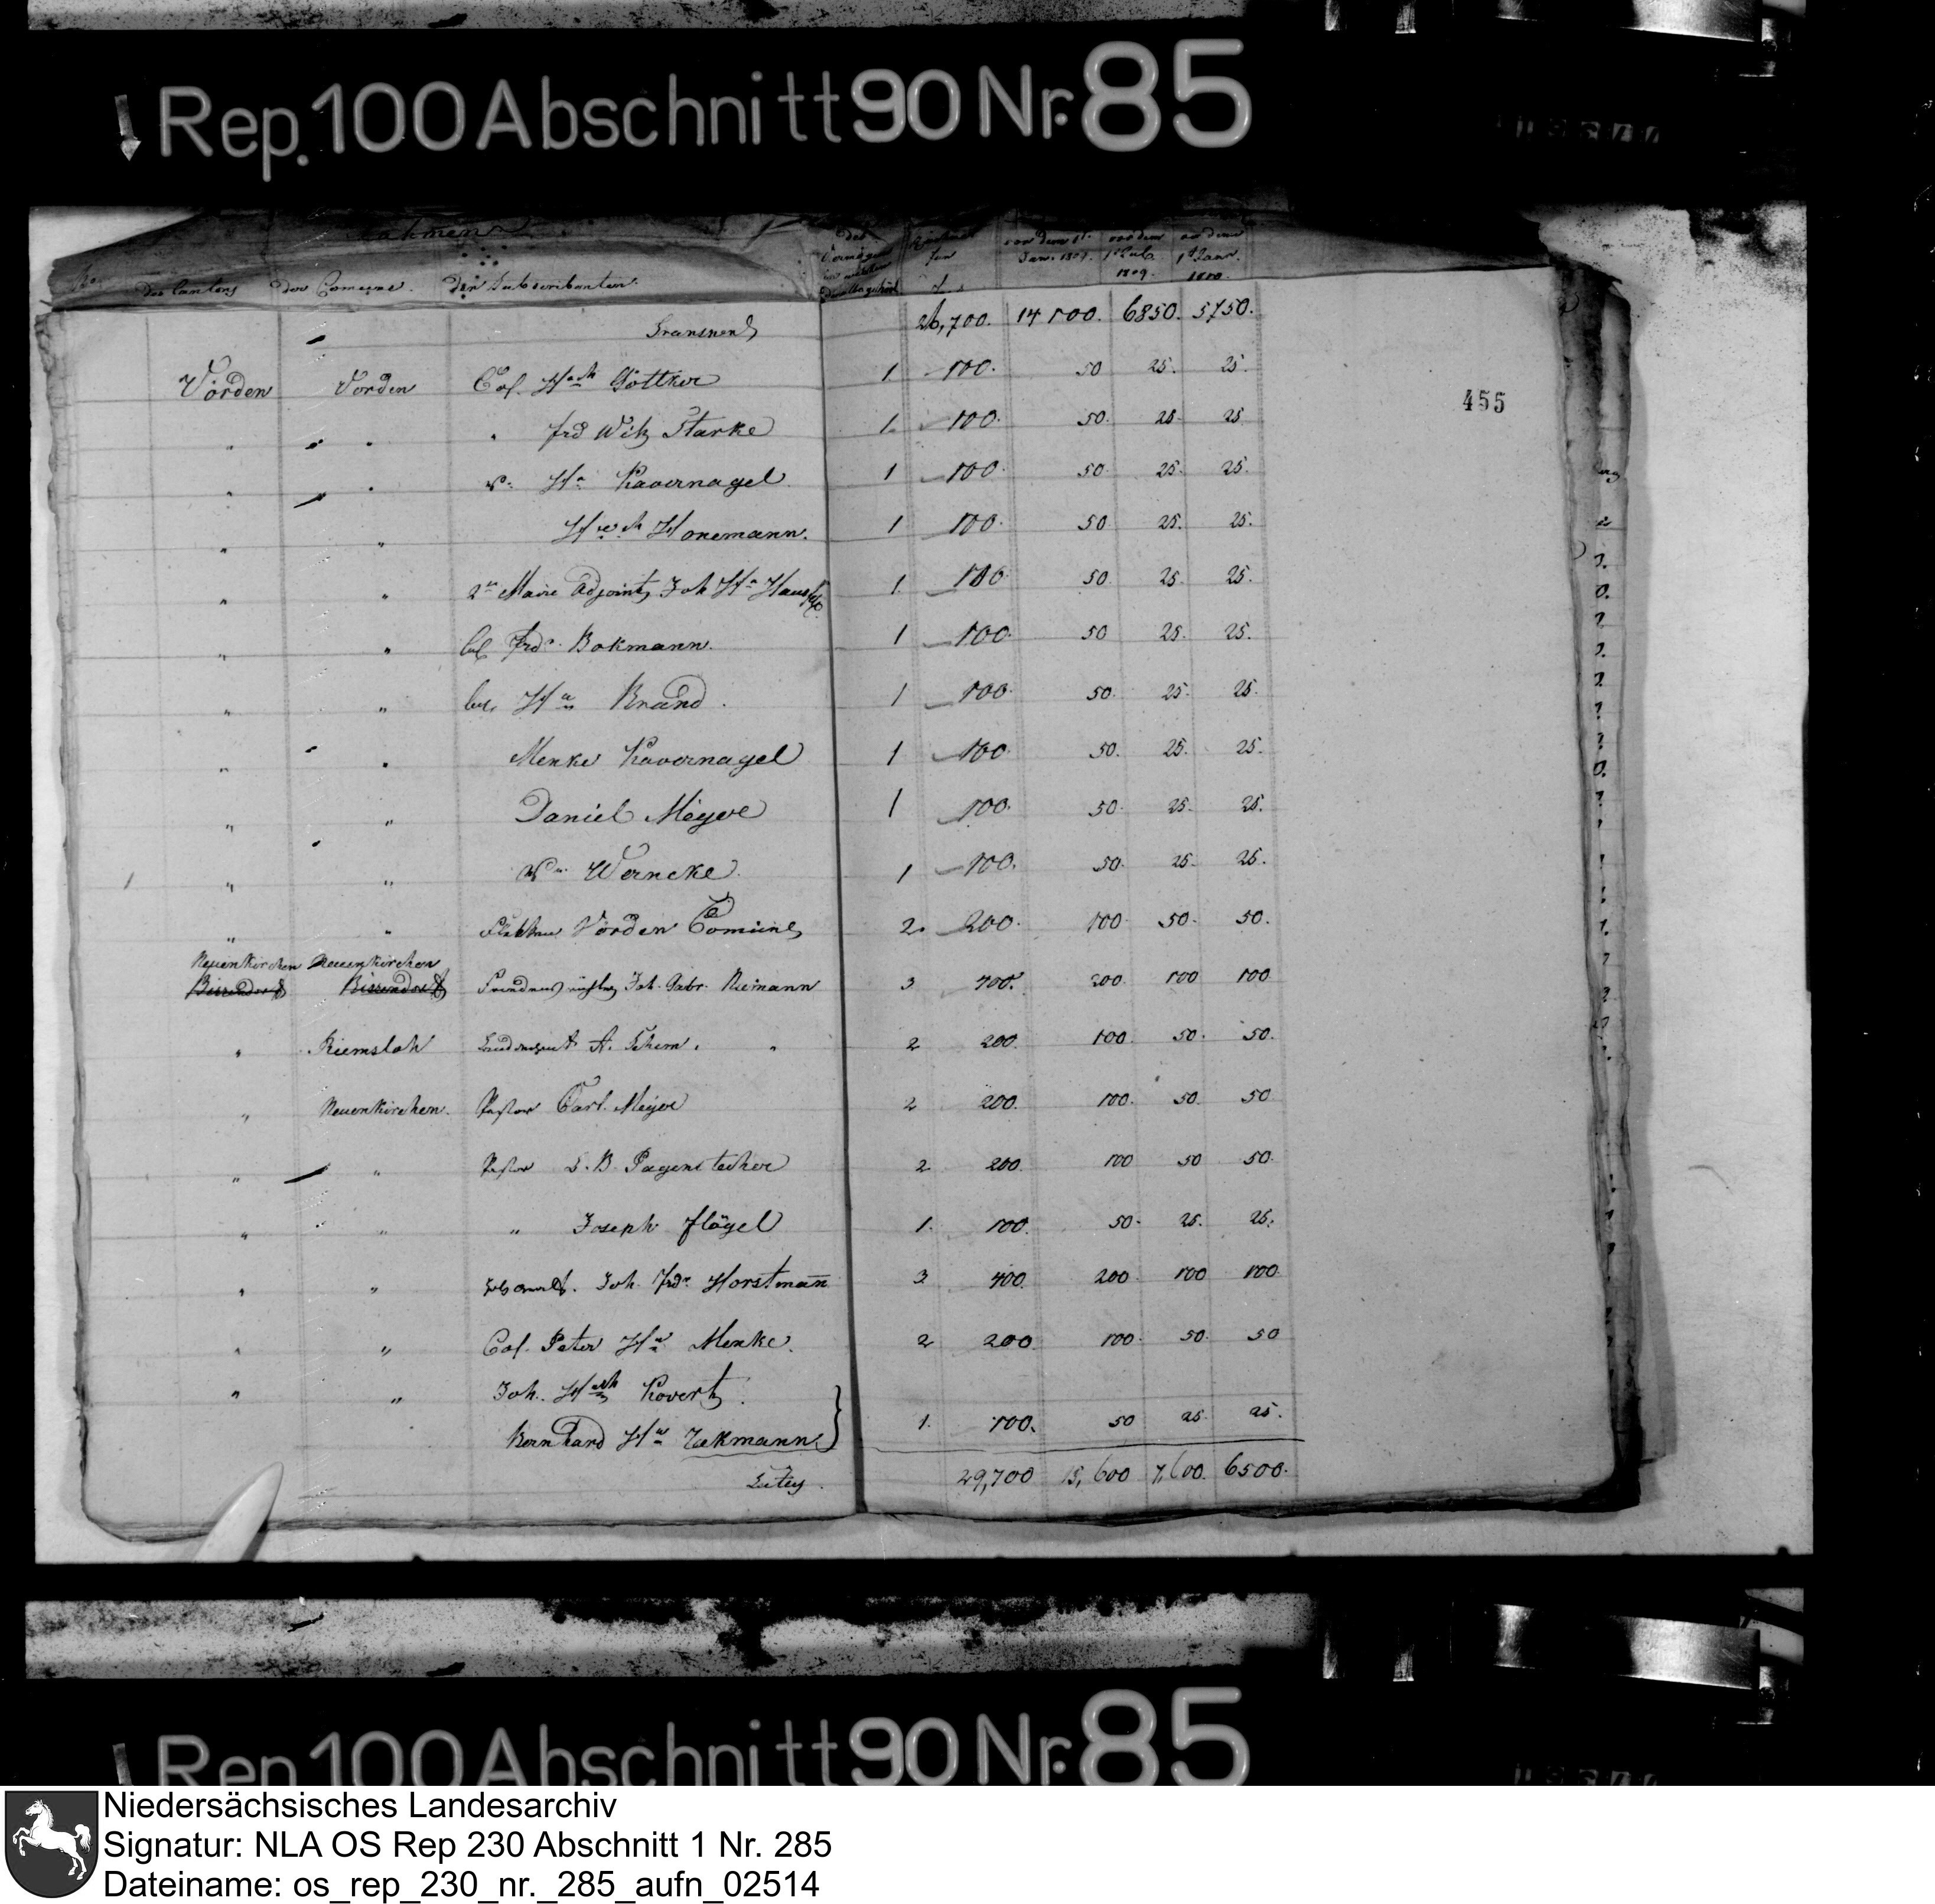 Rep. 100 Abschnitt 90 Nr. 85
Nahmen
des Cantons der Comune. der Subscribenten
vor dem 1t. Jan. 1809. vor dem 1t Jul. 1809. vor dem 1t Januar. 1810.
Transport 26,700. 14100. 6850. 5750.
455
Vörden Vörden Col. Göttker 1 100. 50 25. 25.
" " " frd Wilh Starke 1. 100. 50. 25. 25
" " Kavernagel 1 100. 50. 25. 25.
" " Honemann. 1 100. 50 25. 25.
" " 2te Maire Adjoint Joh 1. 100. 50. 25. 25.
" " Col frd. Bokmann. 1 100. 50 25. 25.
" " Col. Brand. 1 100. 50. 25. 25.
" " Menke Kavernagel 1 100. 50. 25. 25.
" " Daniel Meyer 1 100. 50. 25. 25.
" " Werncke. 1 100. 50. 25. 25.
" " Vörden Comune 2. 200. 100. 50. 50.
Neuenkirchen Neuenkirchen
Bissendorf Bissendorf Joh. Gabr. Niemann 3 400. 200 100 100
" Riemsloh A. 2 200. 100. 50. 50.
" Neuenkirchen. Pastor Carl Meyer 2 200. 100. 50. 50
" " Pastor Pagenstecher 2 200. 100 50 50.
" " " Joseph flögel 1. 100. 50. 25. 25.
" " Joh. frd. Horstmann 3 400. 200. 100 100.
" " Col. Peter Menke. 2 200. 100. 50. 50
" " Joh. Kovert.
Bernhard 1. 100. 50 25. 25.
29,700 15,600 7,600. 6500.
Rep. 100 Abschnitt 90 Nr. 85
Niedersächsisches Landesarchiv
Signatur: NLA OS Rep 230 Abschnitt 1 Nr. 285
Dateiname: os_rep_230_nr._285_aufn_02514